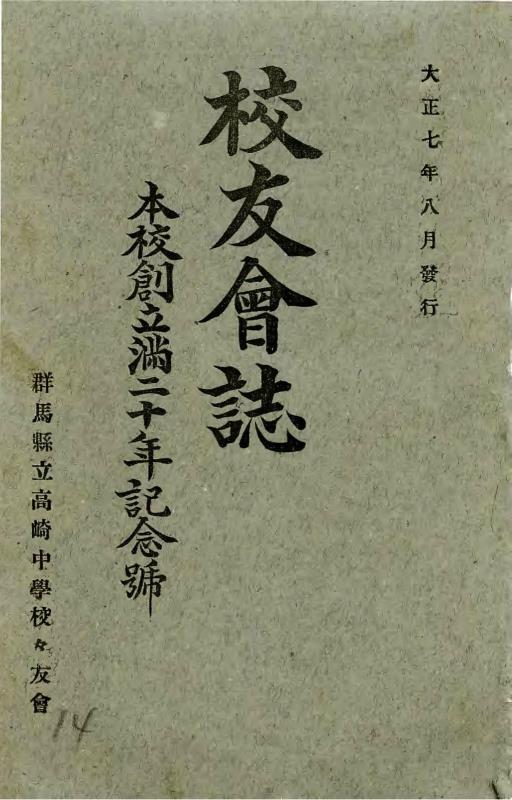 大正七年八月發行
校友會誌
本校創立満二十年記念號
群馬縣立高崎中學校々友會
14